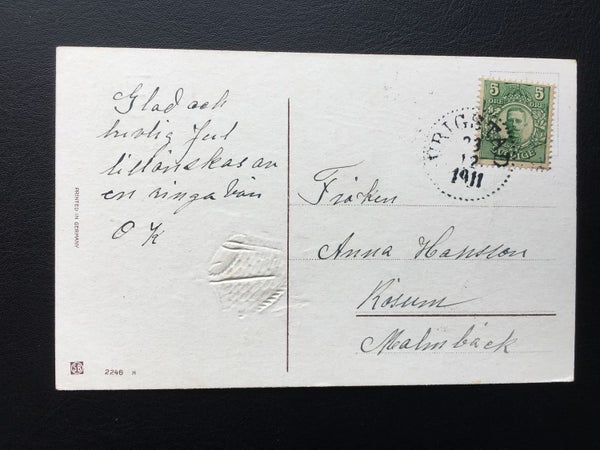 Glad och
huvlig Jul
tillönskas av
en ringa vän
O K
PRINTED IN GERMANY
2246
5 5
ÖRE ÖRE
SVERIGE
VRIGSTAD
23
12
1911
Fröken
Anna Hansson
Rösum
Malmbäck